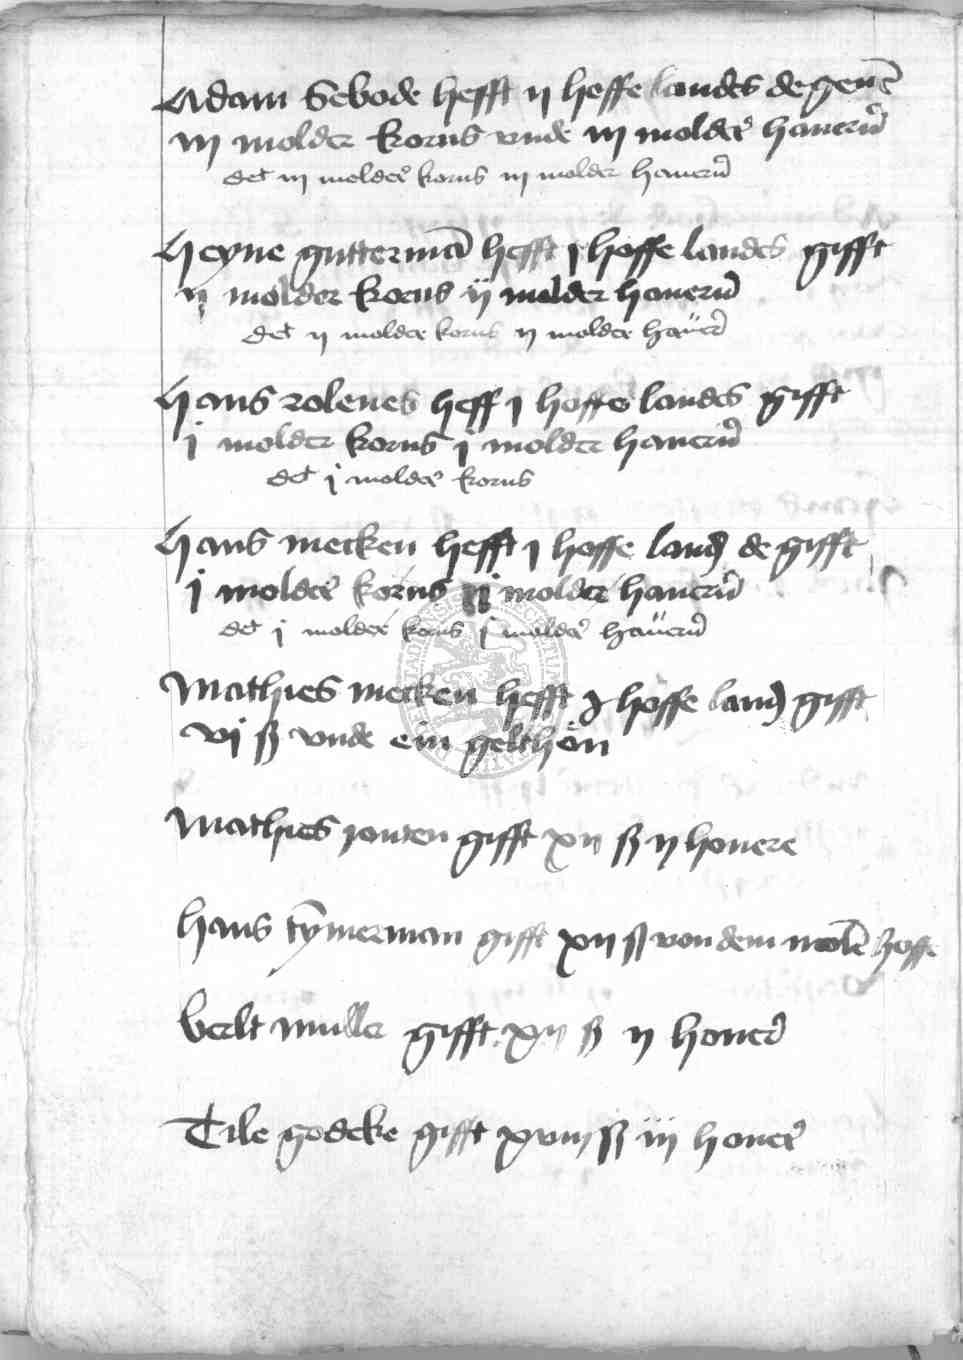 Adam Sebode hefft ij hoffe landes de geuē
iij molder korns vnde iij molder hauern̄
det iij molder korns iij molder hauern̄
Heyne guttermā hefft j hoffe landes gifft
ij molder korns ij molder hauern̄
det ij molder korns ij molder hauer
Hans rolenes heff j hoffe landes gifft
j molder korns j molder hauern̄
det j molder korns
Hans mecken hefft j hoffe land de gifft
j molder korns j molder hauern̄
det j molder korns j molder hauern̄
Mathies mecken hefft j hoffe land gifft
vj ß vnde ein gelthon
Mathies jouten gifft xij ß ij honere
hans tȳmerman gifft xij ß von dem molē hoffe
berlt muller gifft xij ß ij honer
Tile godeke gifft xviij ß iij honer